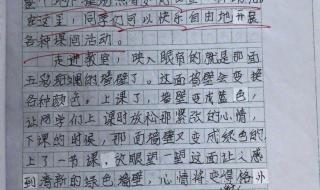 在这里，同学们可以快乐自由地开展
各种课间活动。
走进教室，映入眼帘的就是那面
五彩斑斓的墙壁了。这面墙壁会变换
各种颜色。上课了，墙壁变成蓝色，
让同学们上课时放松那紧张的心情，
下课的时候，那面墙壁又变成绿色的
上了一节课，放眼望一望这面让人感
到清新的绿色墙壁，心情将变得格外